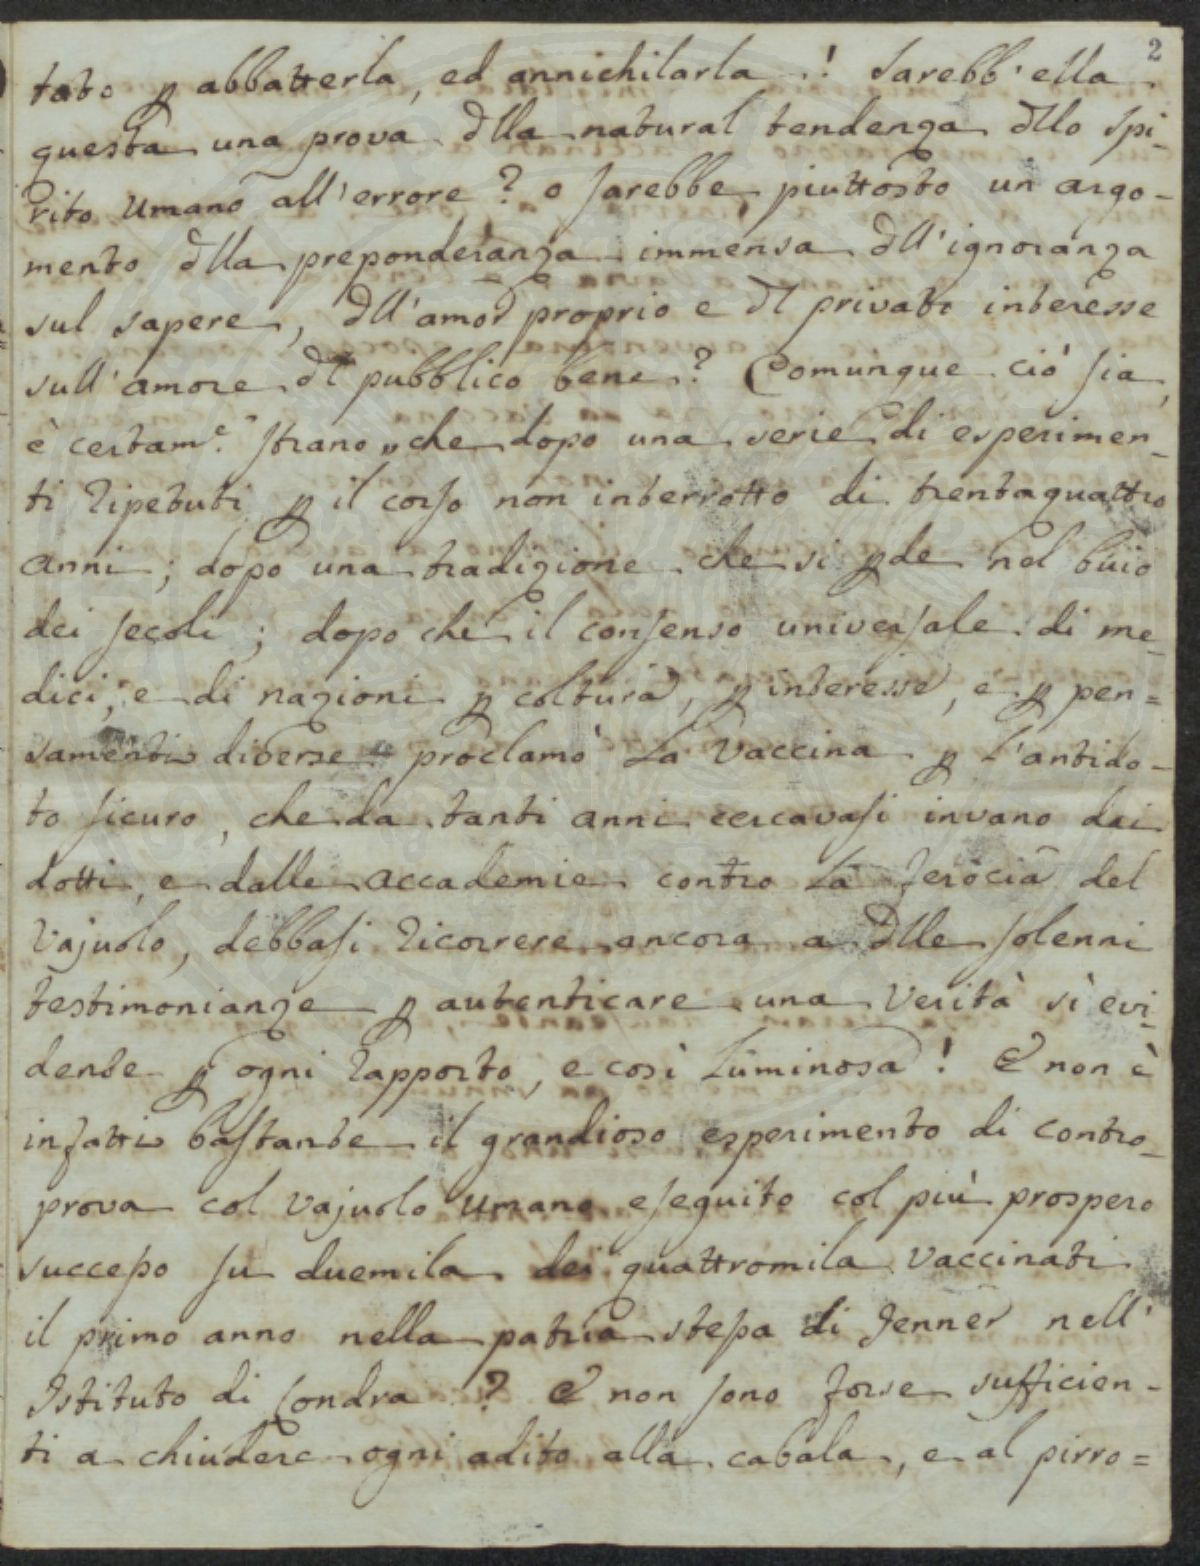 2
tato p abbatterla, ed annichilarla! Sarebb'ella
questa una prova dlla natural tendenza dllo Spi-
rito Umano all'errore? o sarebbe piuttosto un argo-
mento dlla preponderanza immensa dll'ignoranza
sul sapere, dll'amor proprio e dl privato interesse
sull'amore dl pubblico bene? Comunque ciò sia,
è certam.e strano, che dopo una serie di esperimen-
ti ripetuti p il corso non interrotto di trentaquattro
anni; dopo una tradizione che si pde nel buio
dei secoli; dopo che il consenso universale di me-
dici, e di nazioni p coltura, p interesse, e p pen=
samenti diverse proclamò la Vaccina p l'antido-
to sicuro, che da tanti anni cercavasi invano dai
dotti, e dalle accademie contro la ferocia del
Vajuolo, debbasi ricorrere ancora a dlle solenni
testimonianze p autenticare una verità sì evi-
dente p ogni rapporto, e così luminosa! E non è
infatti bastante il grandioso esperimento di contro-
prova col vajuolo umano eseguito col più prospero
successo su duemila dei quattromila vaccinati
il primo anno nella patria stessa di Jenner nell'
Istituto di Londra? E non sono forse sufficien-
ti a chiudere ogni adito alla cabala, e al pirro=